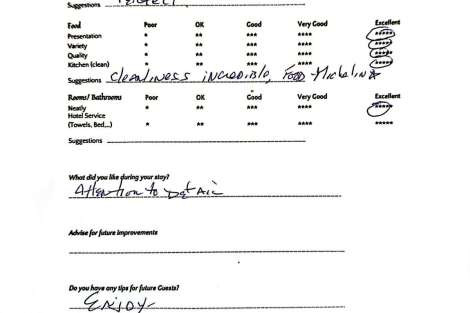 Suggestions Perfect
Food Poor OK Good Very Good Excellent
Presentation * ** *** **** *****
Variety * ** *** **** *****
Quality * ** *** **** *****
Kitchen (clean) * ** *** **** *****
Suggestions Cleanliness incredible, Food Michelin *
Rooms/ Bathrooms Poor OK Good Very Good Excellent
Neatly * ** *** **** *****
Hotel Service
(Towels, Bed,..) * ** *** **** *****
Suggestions
What did you like during your stay?
Attention to Detail
Advise for future improvements
Do you have any tips for future Guests?
Enjoy